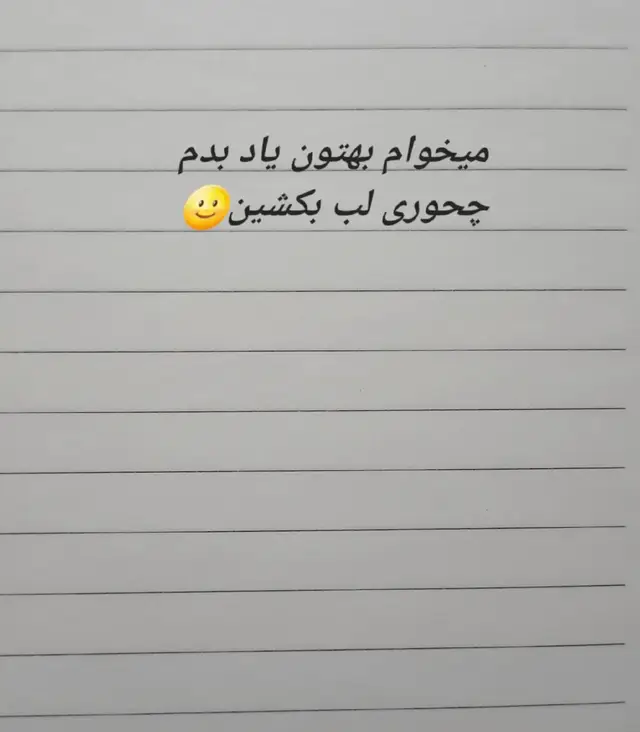 میخوام بهتون یاد بدم
چحوری لب بکشین🙂